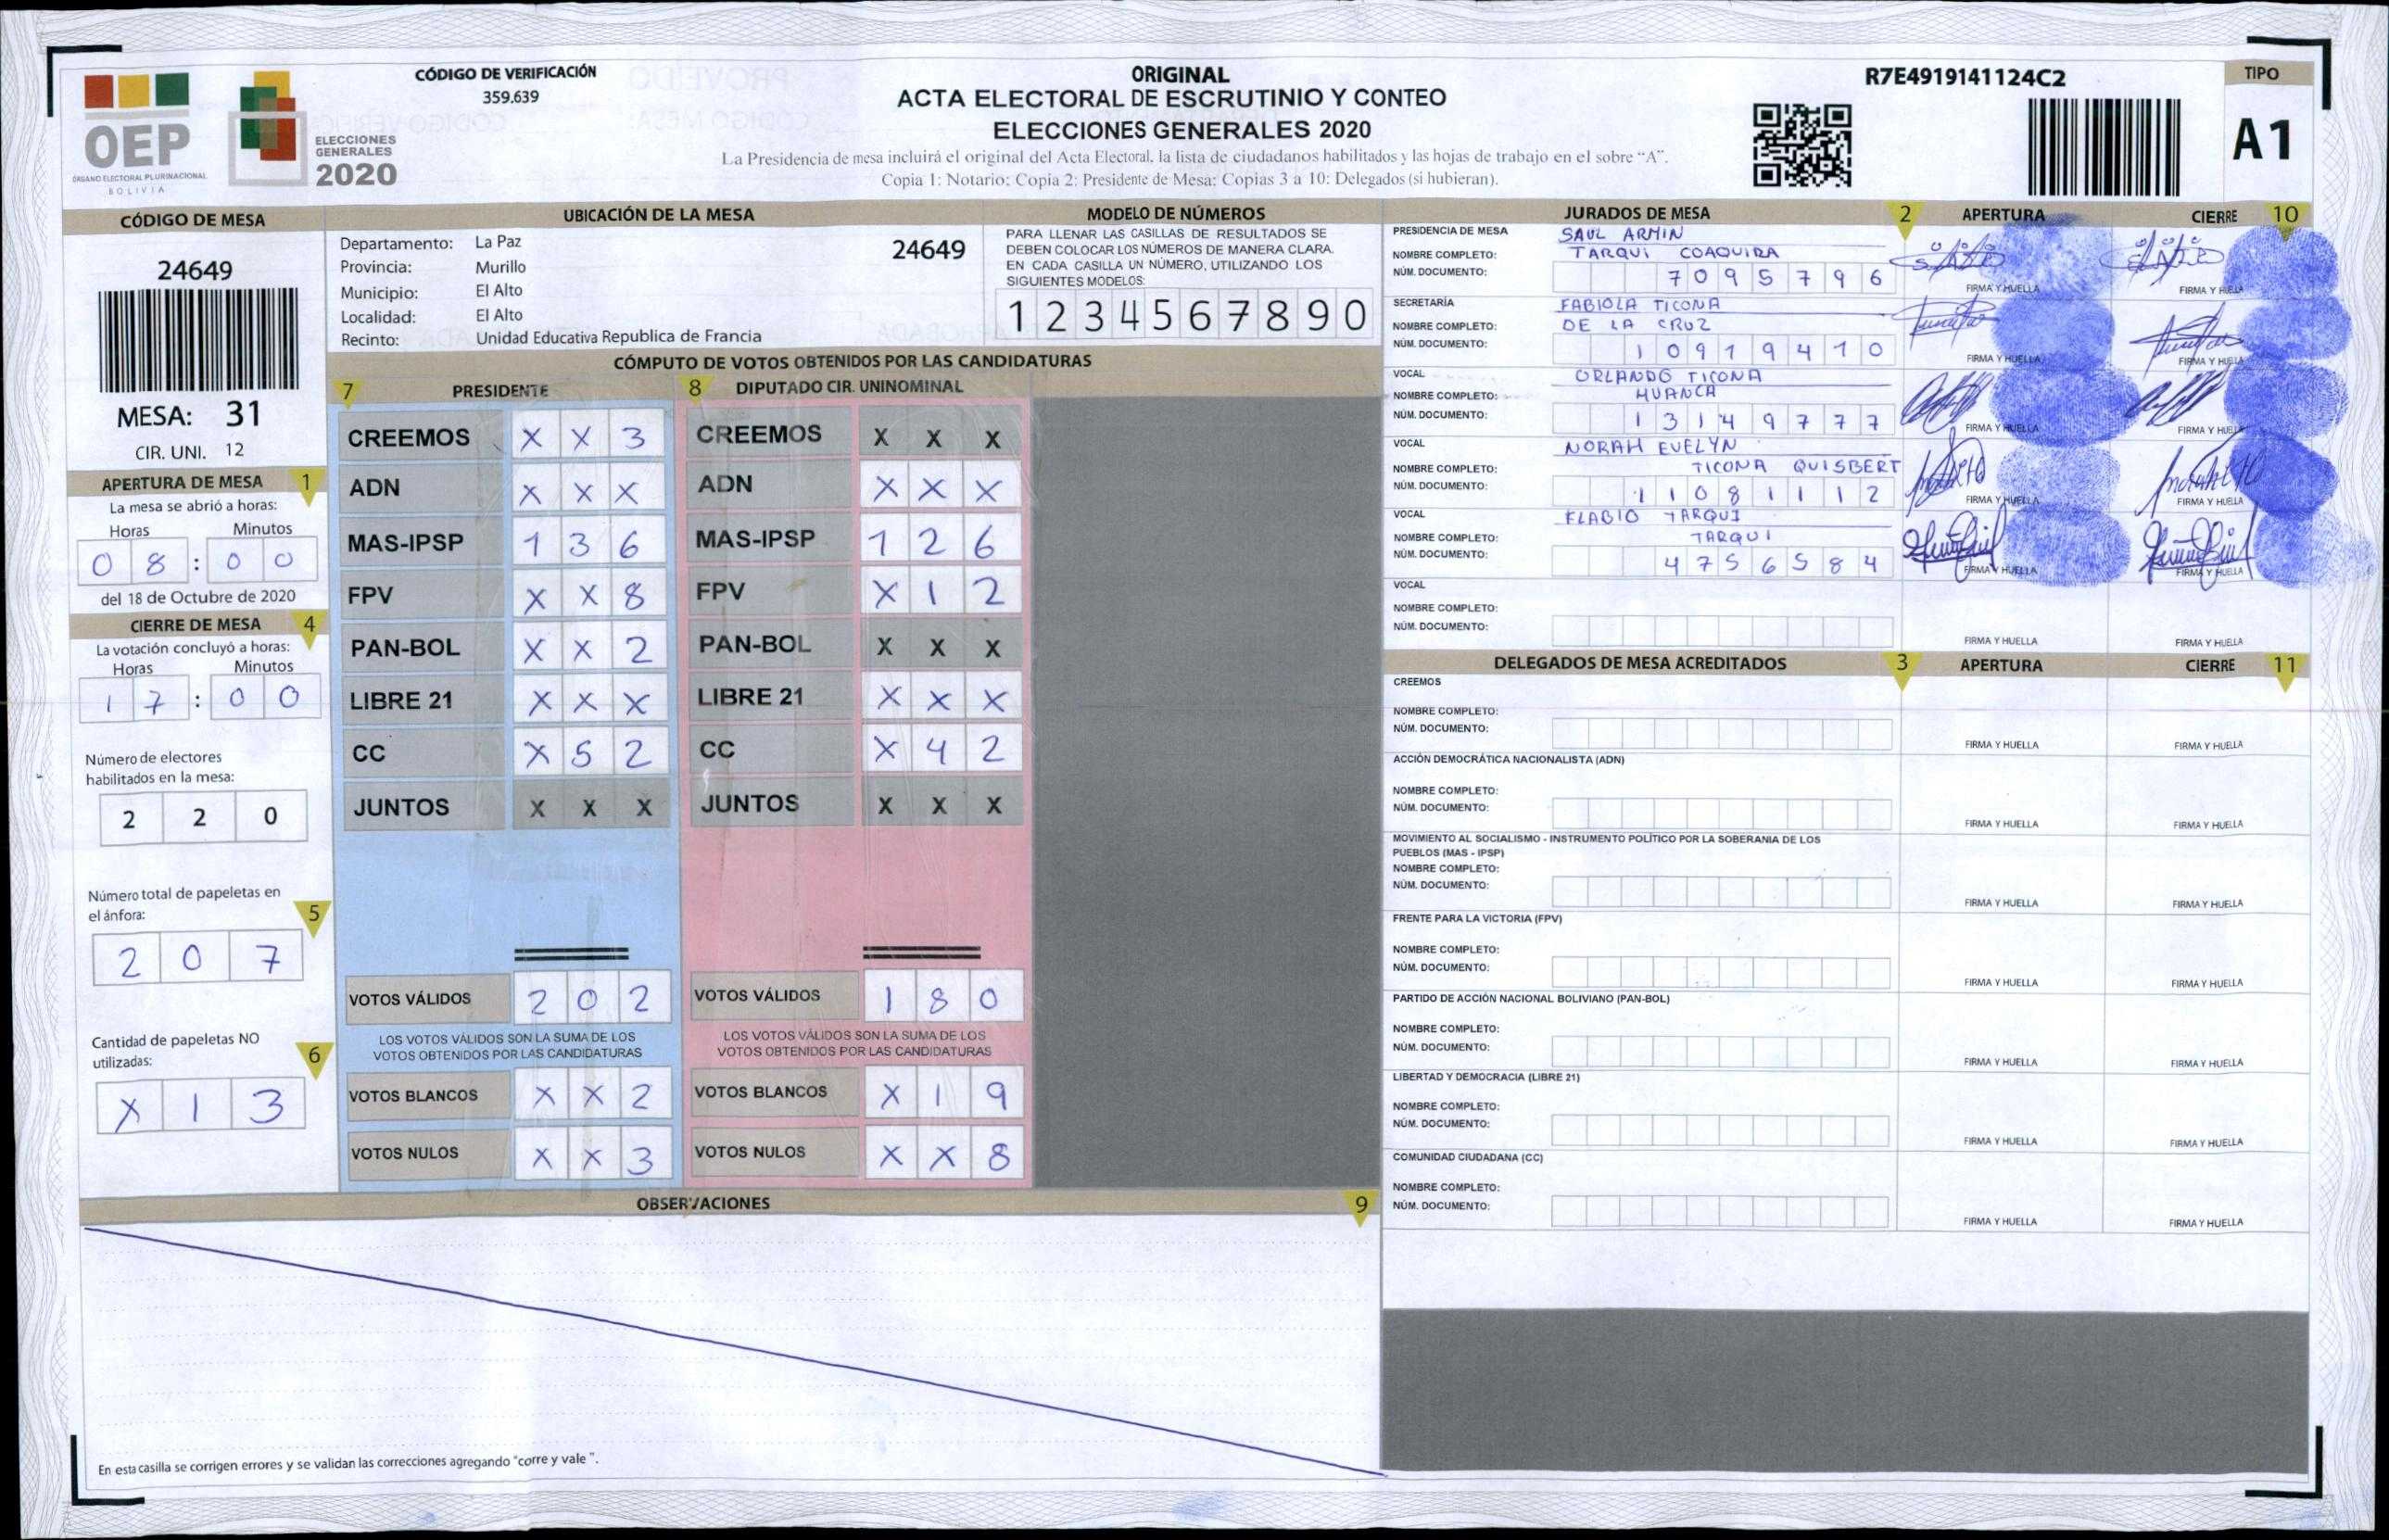 CÓDIGO DE VERIFICACIÓN
359.639
OEP
ÓRGANO ELECTORAL PLURINACIONAL
BOLIVIA
ELECCIONES
GENERALES
2020
ORIGINAL
ACTA ELECTORAL DE ESCRUTINIO Y CONTEO
ELECCIONES GENERALES 2020
La Presidencia de mesa incluirá el original del Acta Electoral, la lista de ciudadanos habilitados y las hojas de trabajo en el sobre “A”.
Copia 1: Notario; Copia 2: Presidente de Mesa; Copias 3 a 10: Delegados (si hubieran).
R7E4919141124C2
TIPO
A1
CÓDIGO DE MESA
24649
MESA: 31
CIR. UNI. 12
UBICACIÓN DE LA MESA
Departamento: La Paz
24649
Provincia: Murillo
Municipio: El Alto
Localidad: El Alto
Recinto: Unidad Educativa Republica de Francia
MODELO DE NÚMEROS
PARA LLENAR LAS CASILLAS DE RESULTADOS SE
DEBEN COLOCAR LOS NÚMEROS DE MANERA CLARA.
EN CADA CASILLA UN NÚMERO, UTILIZANDO LOS
SIGUIENTES MODELOS:
1 2 3 4 5 6 7 8 9 0
APERTURA DE MESA 1
La mesa se abrió a horas:
Horas Minutos
0 8 : 0 0
del 18 de Octubre de 2020
CIERRE DE MESA 4
La votación concluyó a horas:
Horas Minutos
1 7 : 0 0
Número de electores
habilitados en la mesa:
2 2 0
Número total de papeletas en
el ánfora:
5
2 0 7
Cantidad de papeletas NO
utilizadas:
6
X 1 3
CÓMPUTO DE VOTOS OBTENIDOS POR LAS CANDIDATURAS
7 PRESIDENTE
CREEMOS X X 3
ADN X X X
MAS-IPSP 1 3 6
FPV X X 8
PAN-BOL X X 2
LIBRE 21 X X X
CC X 5 2
JUNTOS X X X
VOTOS VÁLIDOS 2 0 2
LOS VOTOS VÁLIDOS SON LA SUMA DE LOS
VOTOS OBTENIDOS POR LAS CANDIDATURAS
VOTOS BLANCOS X X 2
VOTOS NULOS X X 3
8 DIPUTADO CIR. UNINOMINAL
CREEMOS X X X
ADN X X X
MAS-IPSP 1 2 6
FPV X 1 2
PAN-BOL X X X
LIBRE 21 X X X
CC X 4 2
JUNTOS X X X
VOTOS VÁLIDOS 1 8 0
LOS VOTOS VÁLIDOS SON LA SUMA DE LOS
VOTOS OBTENIDOS POR LAS CANDIDATURAS
VOTOS BLANCOS X 1 9
VOTOS NULOS X X 8
OBSERVACIONES 9
En esta casilla se corrigen errores y se validan las correcciones agregando "corre y vale ".
JURADOS DE MESA 2 APERTURA CIERRE 10
PRESIDENCIA DE MESA SAUL ARMIN
NOMBRE COMPLETO: TARQUI COAQUIRA
NÚM. DOCUMENTO: 7 0 9 5 7 9 6
FIRMA Y HUELLA FIRMA Y HUELLA
SECRETARÍA FABIOLA TICONA
NOMBRE COMPLETO: DE LA CRUZ
NÚM. DOCUMENTO: 1 0 9 1 9 4 1 0
FIRMA Y HUELLA FIRMA Y HUELLA
VOCAL ORLANDO TICONA
NOMBRE COMPLETO: HUANCA
NÚM. DOCUMENTO: 1 3 1 4 9 7 7 7
FIRMA Y HUELLA FIRMA Y HUELLA
VOCAL NORAH EVELYN
NOMBRE COMPLETO: TICONA QUISBERT
NÚM. DOCUMENTO: 1 1 0 8 1 1 1 2
FIRMA Y HUELLA FIRMA Y HUELLA
VOCAL FLABIO TARQUI
NOMBRE COMPLETO: TARQUI
NÚM. DOCUMENTO: 4 7 5 6 5 8 4
FIRMA Y HUELLA FIRMA Y HUELLA
VOCAL
NOMBRE COMPLETO:
NÚM. DOCUMENTO:
FIRMA Y HUELLA FIRMA Y HUELLA
DELEGADOS DE MESA ACREDITADOS 3 APERTURA CIERRE 11
CREEMOS
NOMBRE COMPLETO:
NÚM. DOCUMENTO:
FIRMA Y HUELLA FIRMA Y HUELLA
ACCIÓN DEMOCRÁTICA NACIONALISTA (ADN)
NOMBRE COMPLETO:
NÚM. DOCUMENTO:
FIRMA Y HUELLA FIRMA Y HUELLA
MOVIMIENTO AL SOCIALISMO - INSTRUMENTO POLÍTICO POR LA SOBERANIA DE LOS
PUEBLOS (MAS - IPSP)
NOMBRE COMPLETO:
NÚM. DOCUMENTO:
FIRMA Y HUELLA FIRMA Y HUELLA
FRENTE PARA LA VICTORIA (FPV)
NOMBRE COMPLETO:
NÚM. DOCUMENTO:
FIRMA Y HUELLA FIRMA Y HUELLA
PARTIDO DE ACCIÓN NACIONAL BOLIVIANO (PAN-BOL)
NOMBRE COMPLETO:
NÚM. DOCUMENTO:
FIRMA Y HUELLA FIRMA Y HUELLA
LIBERTAD Y DEMOCRACIA (LIBRE 21)
NOMBRE COMPLETO:
NÚM. DOCUMENTO:
FIRMA Y HUELLA FIRMA Y HUELLA
COMUNIDAD CIUDADANA (CC)
NOMBRE COMPLETO:
NÚM. DOCUMENTO:
FIRMA Y HUELLA FIRMA Y HUELLA